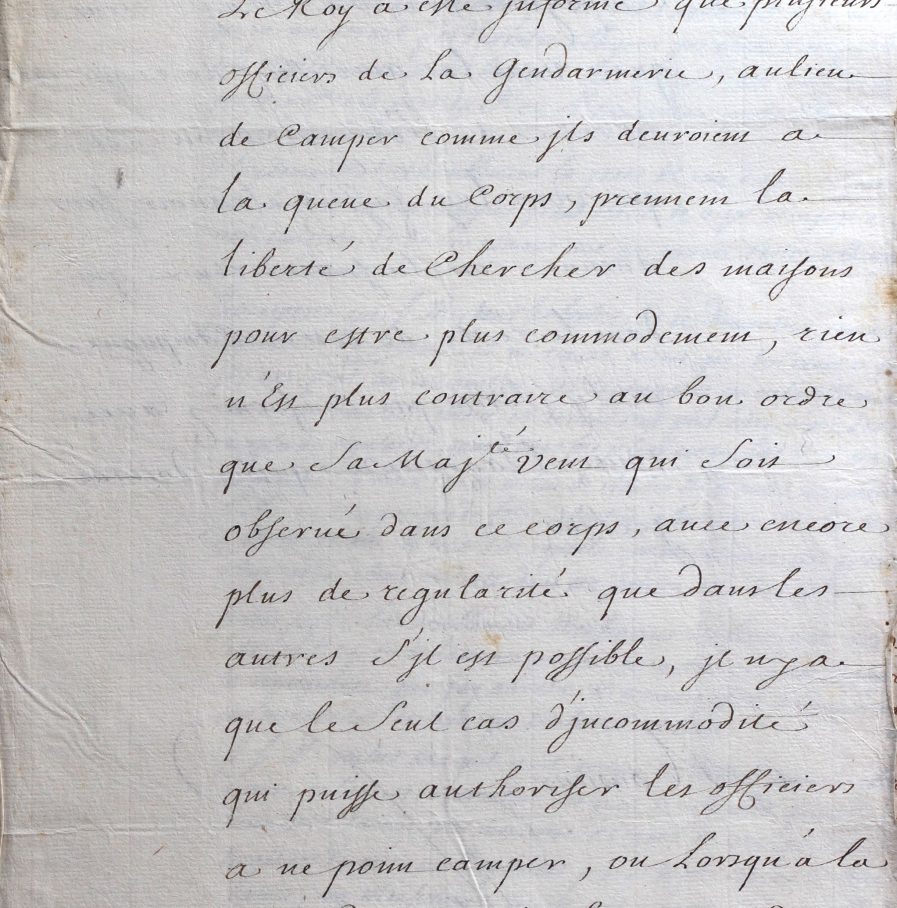 Le Roy a esté jnformé que plusieurs
officiers de La Gendarmerie, aulieu
de Camper comme jls deuroient a
la queue du Corps, prennent la
liberté de Chercher des maisons
pour estre plus commodement, rien
n'Est plus contraire au bon ordre
que Sa Maj.té veut qui Soit
obserué dans ce corps, auec encore
plus de regularité que dans les
autres S'jl est possible, jl n y a
que le Seul cas d'jncommodité
qui puisse authoriser les officiers
a ne point camper, ou Lorsqu'a la